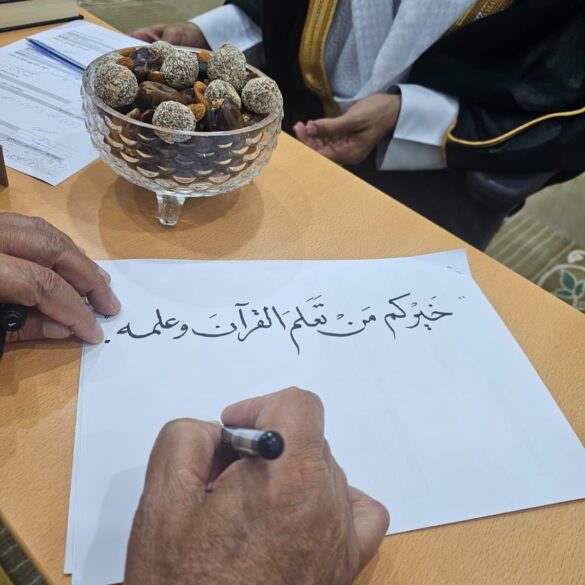 "خَيْركم مَنْ تَعَلمَ القرآنَ وعلمه.